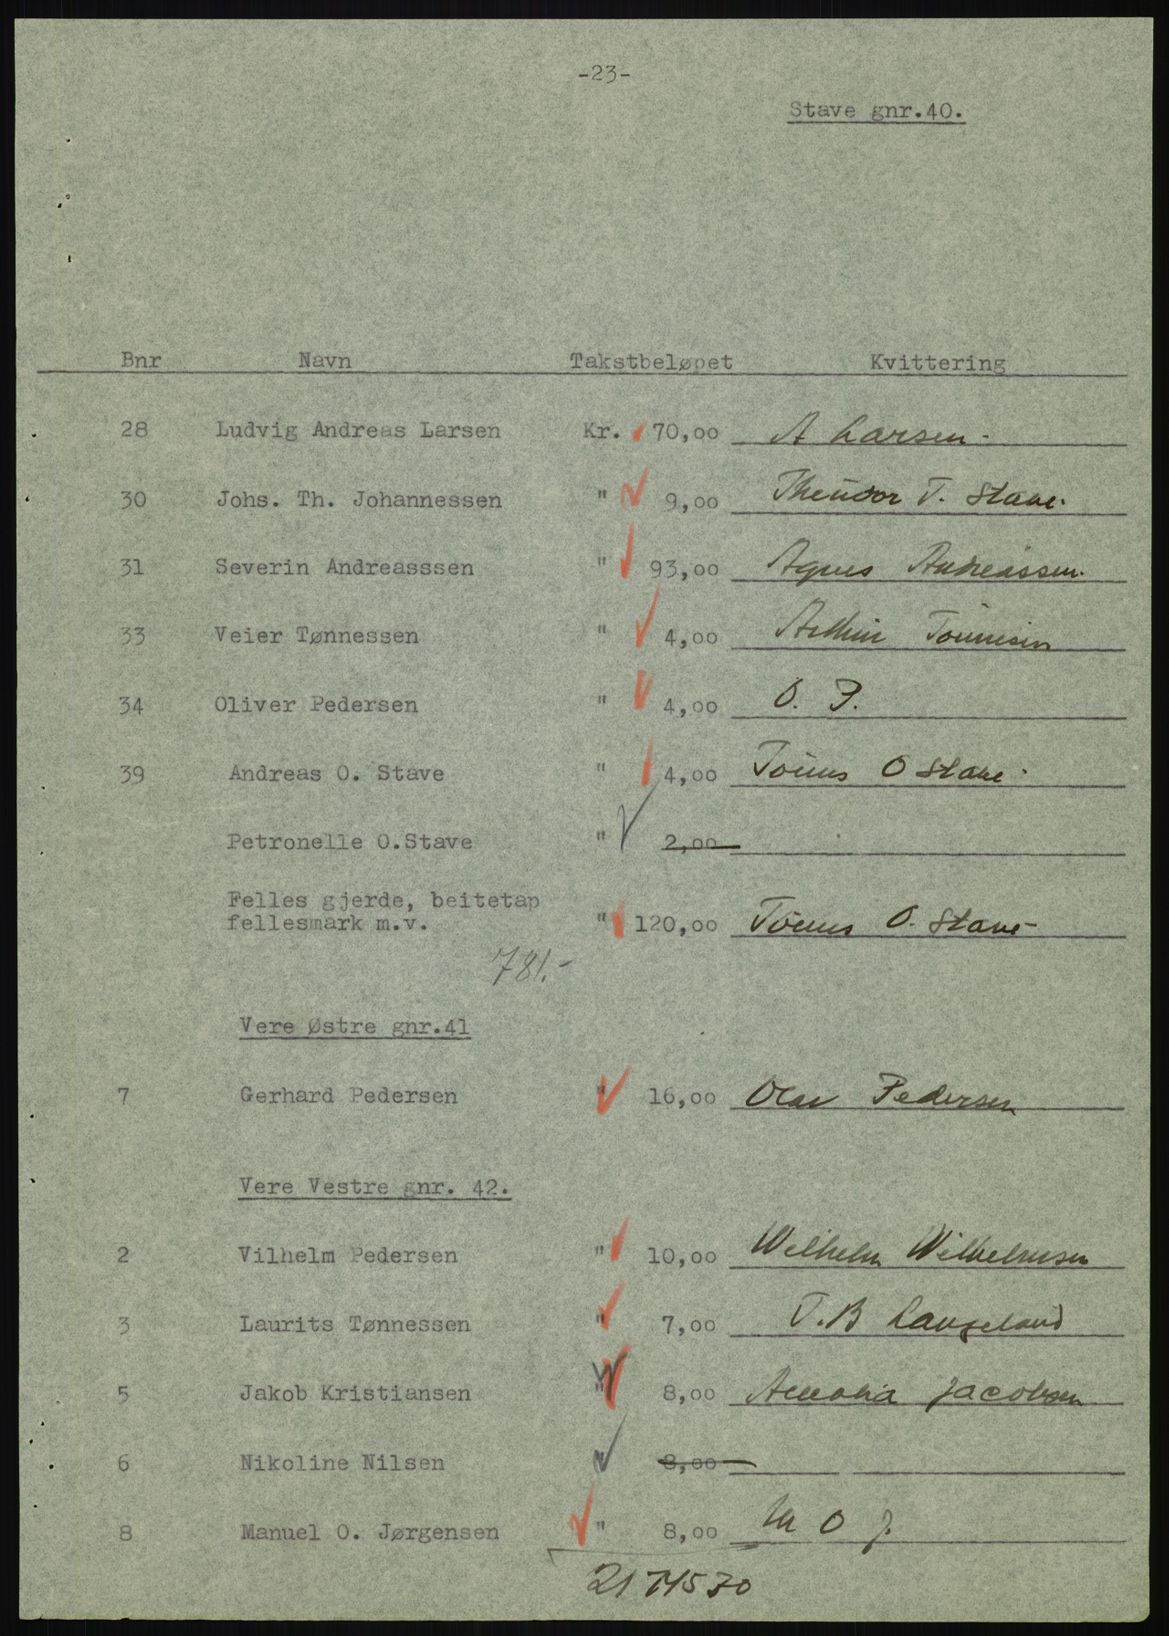 -23-
Stave gnr.40.
Bnr Navn Takstbeløpet Kvittering
28 Ludvig Andreas Larsen Kr. 70,00 A Larsen.
30 Johs. Th. Johannessen " 9,00 Theodor T. Stave.
31 Severin Andreasssen " 93,00 Agnes Andreassen.
33 Veier Tønnessen " 4,00
34 Oliver Pedersen " 4,00 O. P.
39 Andreas O. Stave " 4,00 O Stave
Petronelle O.Stave " 2,00
Felles gjerde, beitetap
fellesmark m.v. " 120,00 O. Stave
781.-
Vere Østre gnr.41
7 Gerhard Pedersen " 16,00 Olav Pedersen
Vere Vestre gnr. 42.
2 Vilhelm Pedersen " 10,00 Wilhelm Wilhelmsen
3 Laurits Tønnessen " 7,00 T.B Langeland
5 Jakob Kristiansen " 8,00 Jacobsen
6 Nikoline Nilsen " 8,00
8 Manuel O. Jørgensen " 8,00 M O J.